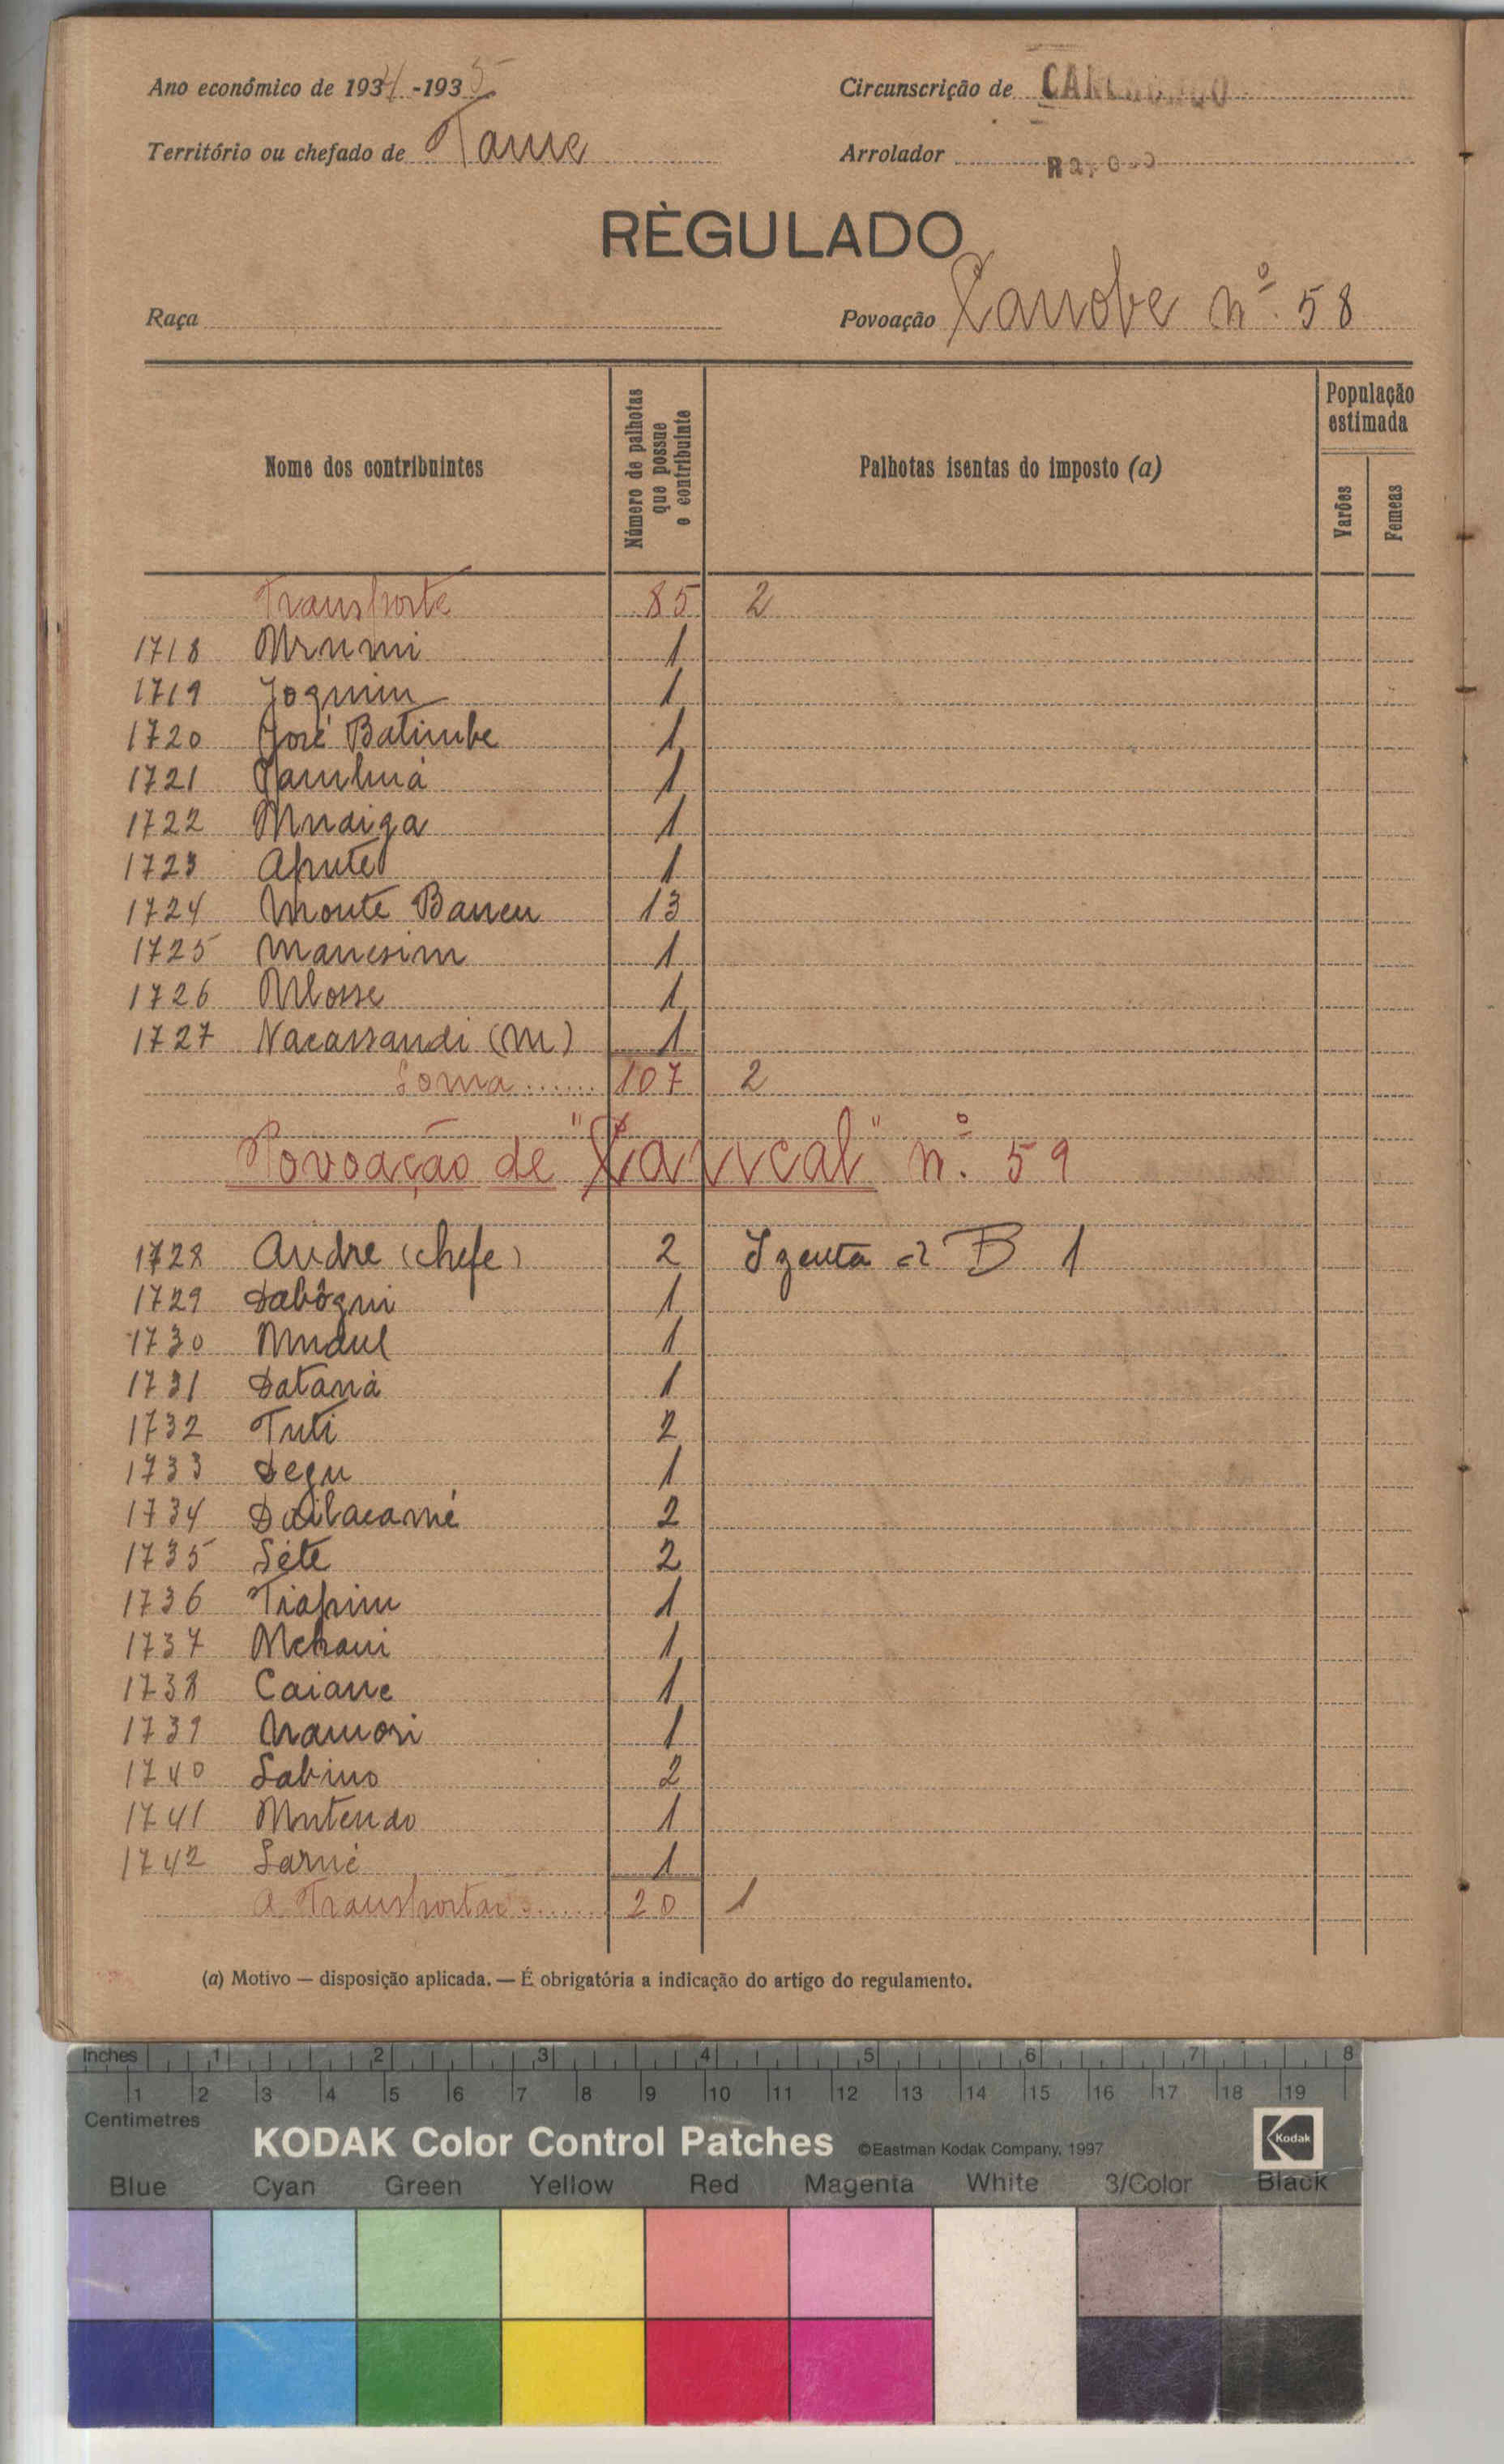 Ano económico de 1934-1935
Circunscrição de
Território ou chefado de Tame
Arrolador
RÈGULADO
Raça
Povoação nº 58
Nome dos contribuintes
Número de palhotas que possue o contribuinte
Palhotas isentas do imposto (a)
População estimada
Varões
Femeas
Transporte 85 2
1718 Mrumi 1
1719 Joquim 1
1720 José Batimbe 1
1721 1
1722 Mudiga 1
1723 Apute 1
1724 Monte Baneu 13
1725 Manesim 1
1726 Mlosse 1
1727 Nacassandi (M) 1
Soma ...... 107 2
Povoação de nº 59
1728 Andre (chefe) 2 Izenta B 1
1729 Dabôqui 1
1730 Mudul 1
1731 Dataná 1
1732 Tuti 2
1733 Degu 1
1734 2
1735 Séte 2
1736 Tiapim 1
1737 1
1738 Caiane 1
1739 Namori 1
1740 Sabino 2
1741 Mutendo 1
1742 Sarné 1
A Transportar ...... 20 1
(a) Motivo — disposição aplicada. — É obrigatória a indicação do artigo do regulamento.
Inches 1 2 3 4 5 6 7 8
1 2 3 4 5 6 7 8 9 10 11 12 13 14 15 16 17 18 19
Centimetres
KODAK Color Control Patches ©Eastman Kodak Company, 1997 Kodak
Blue Cyan Green Yellow Red Magenta White 3/Color Black